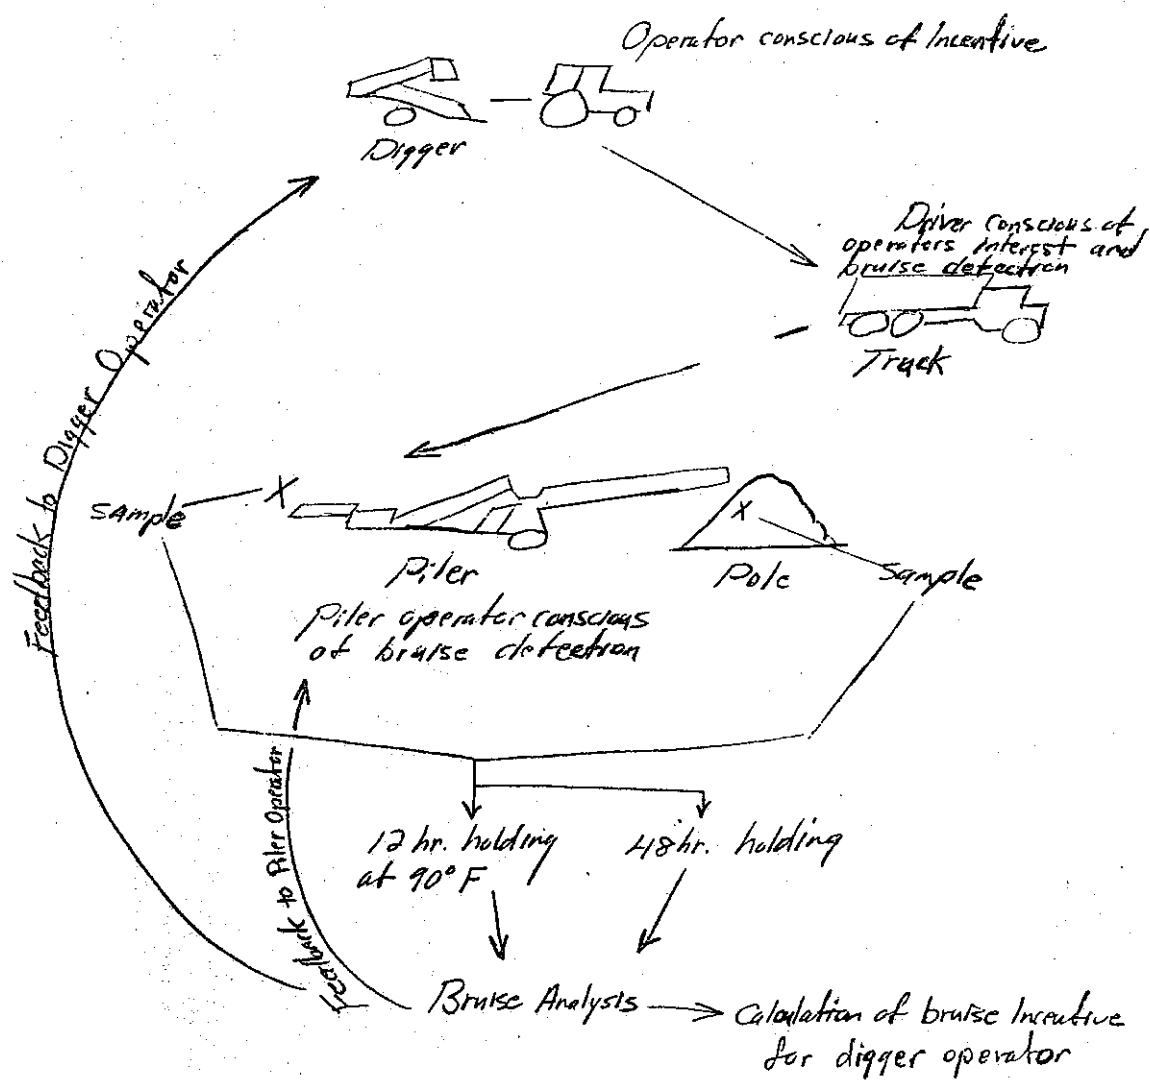 Operator conscious of Incentive
Digger
Driver conscious of
operaters interest and
bruise detection
Truck
Feedback to Digger Operator
sample
X
X
Piler
Pole
sample
Piler operator conscious
of bruise detection
Feedback to Piler Operator
12 hr. holding
at 90° F
48 hr. holding
Bruise Analysis
Calculation of bruise Incentive
for digger operator